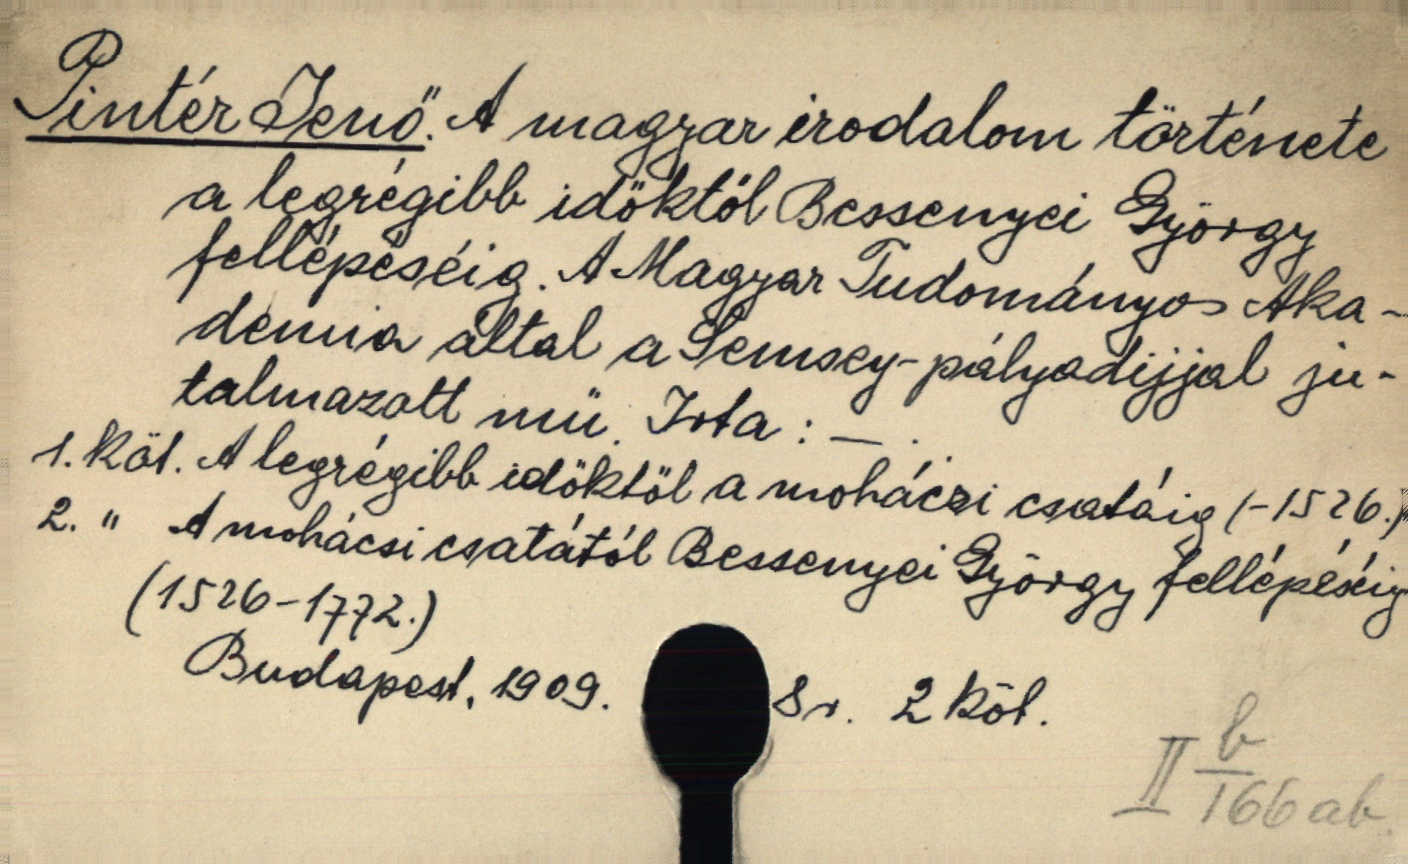 Pintér Jenő. A magyar irodalom története
a legrégibb időktől Bessenyei György
fellépéséig. A Magyar Tudományos Aka-
demia által a Semsey-pályadijjal ju-
talmazott mü. Irta: — .
1. Köt. A legrégibb időktöl a mohácsi csatáig (-1526.)
2. " A mohácsi csatától Bessenyei György fellépéséig
(1526-1772.)
Budapest, 1909. 8r. 2 Köt.
II b/166 ab.